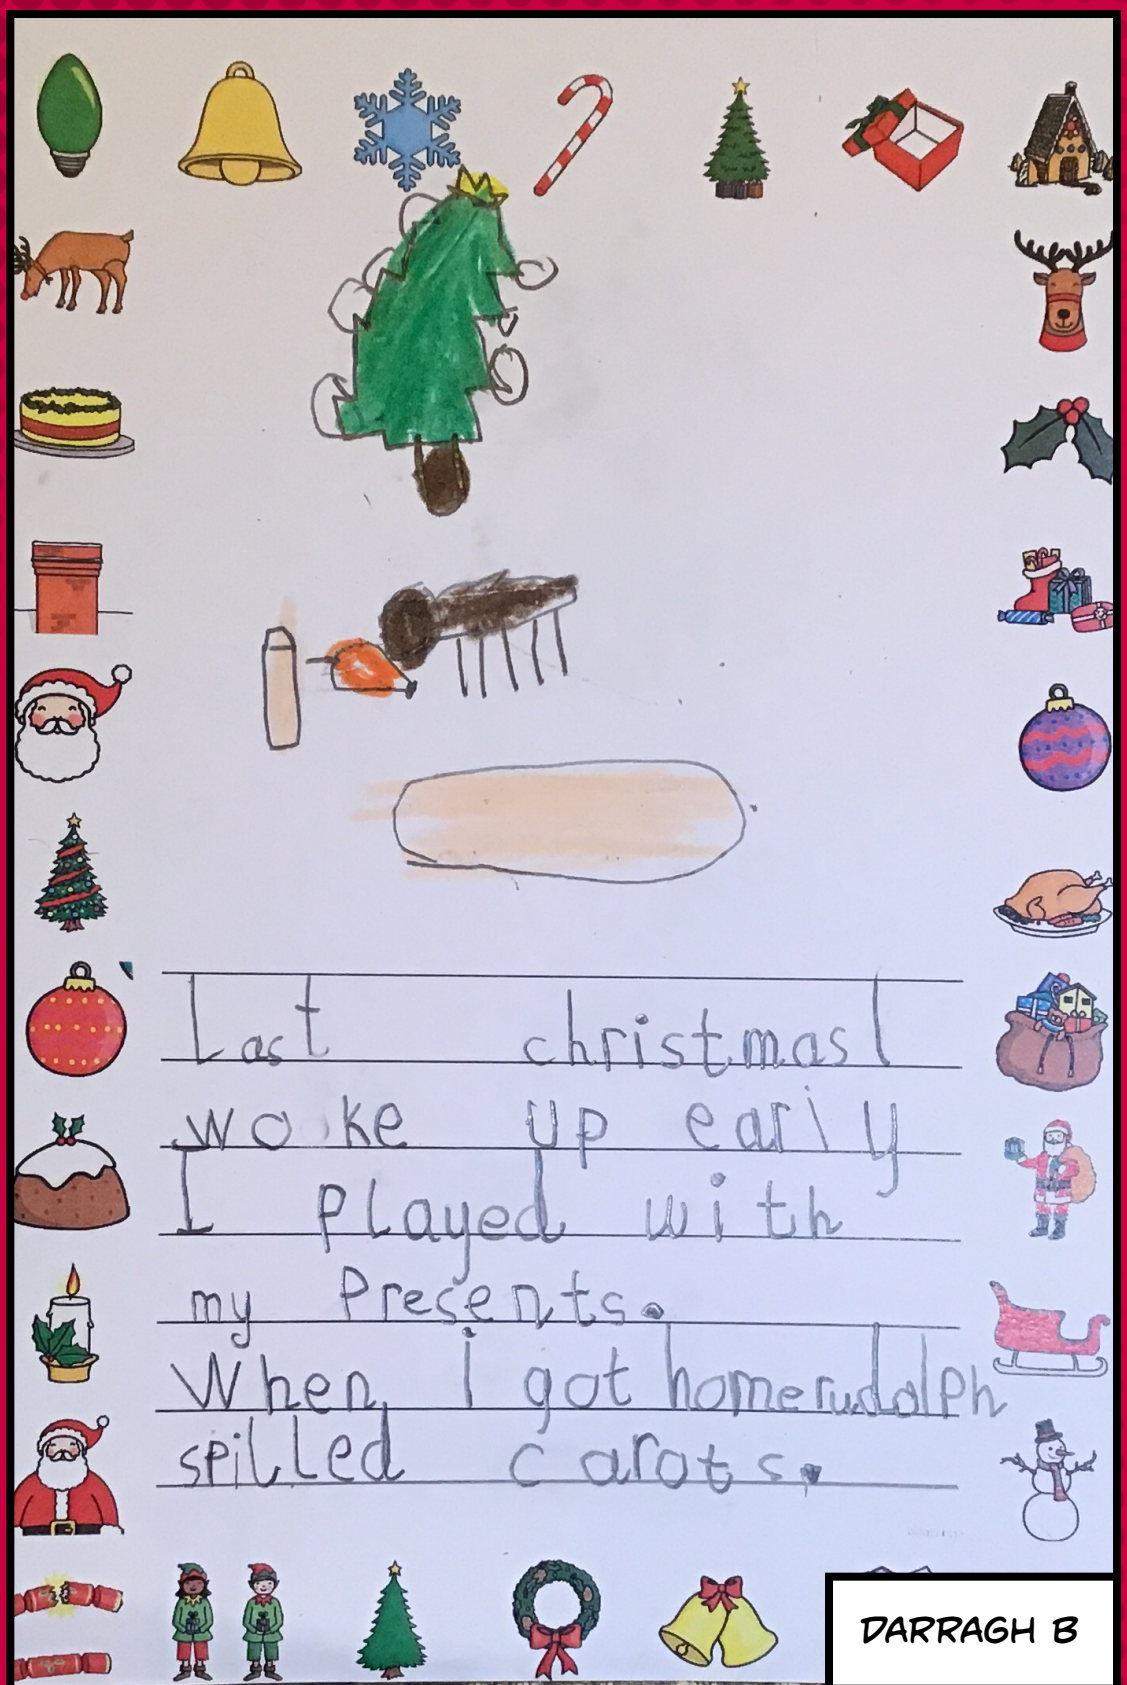 Last christmas I
woke up early
I played with
my Presents.
When I got home rudolph
spilled carots.
DARRAGH B